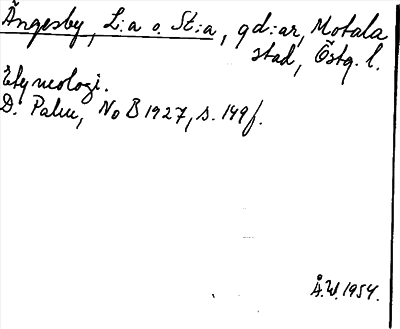 Ängesby, L:a o. St:a, gd:ar, Motala
stad, Östg. l.
Etymologi.
D. Palm, No B 1927, s. 149f.
Å.W. 1954.